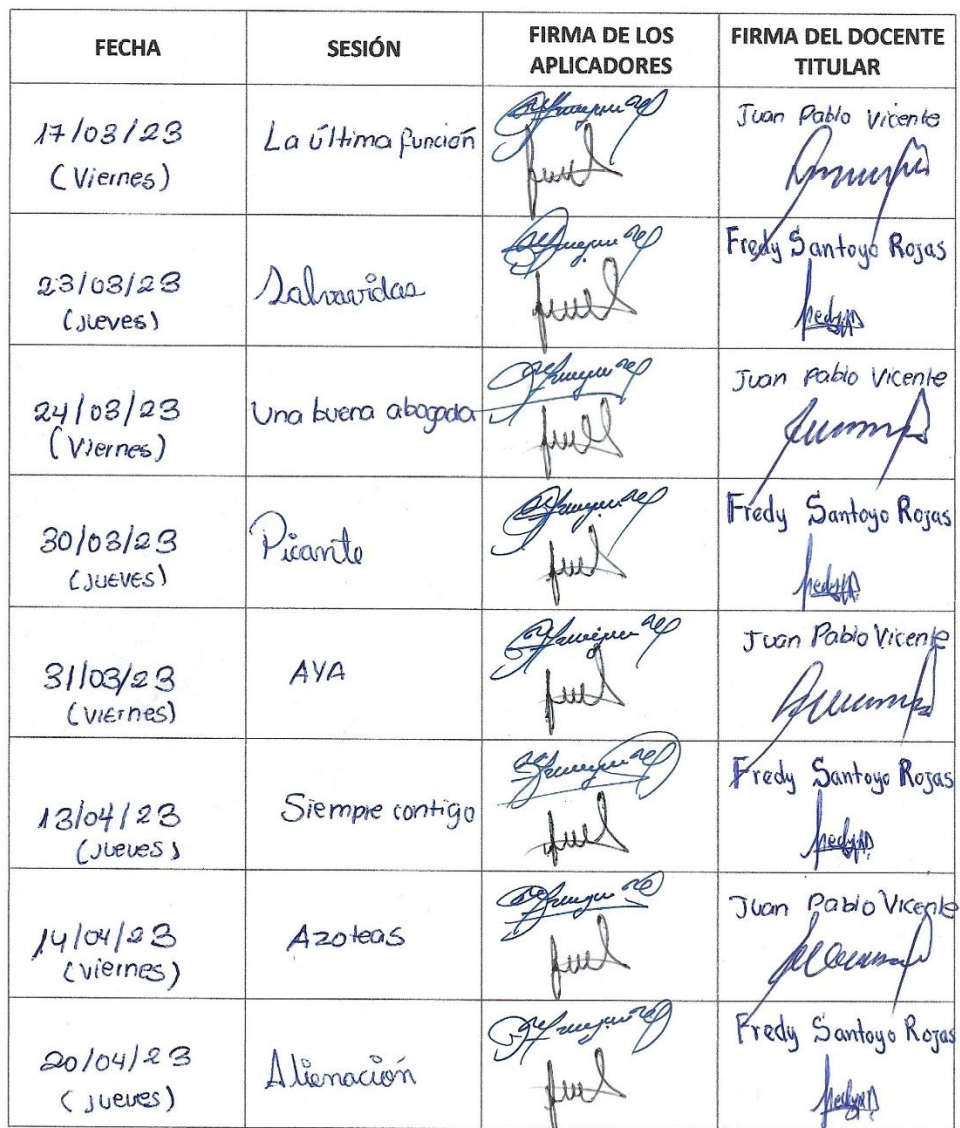 FECHA
SESIÓN
FIRMA DE LOS
APLICADORES
FIRMA DEL DOCENTE
TITULAR
17/03/23
(Viernes)
La última función
Juan Pablo Vicente
23/03/23
(Jueves)
Salvavidas
Fredy Santoyo Rojas
24/03/23
(Viernes)
Una buena abogada
Juan Pablo Vicente
30/03/23
(Jueves)
Picante
Fredy Santoyo Rojas
31/03/23
(Viernes)
AYA
Juan Pablo Vicente
13/04/23
(Jueves)
Siempre contigo
Fredy Santoyo Rojas
14/04/23
(Viernes)
Azoteas
Juan Pablo Vicente
20/04/23
(Jueves)
Alienación
Fredy Santoyo Rojas